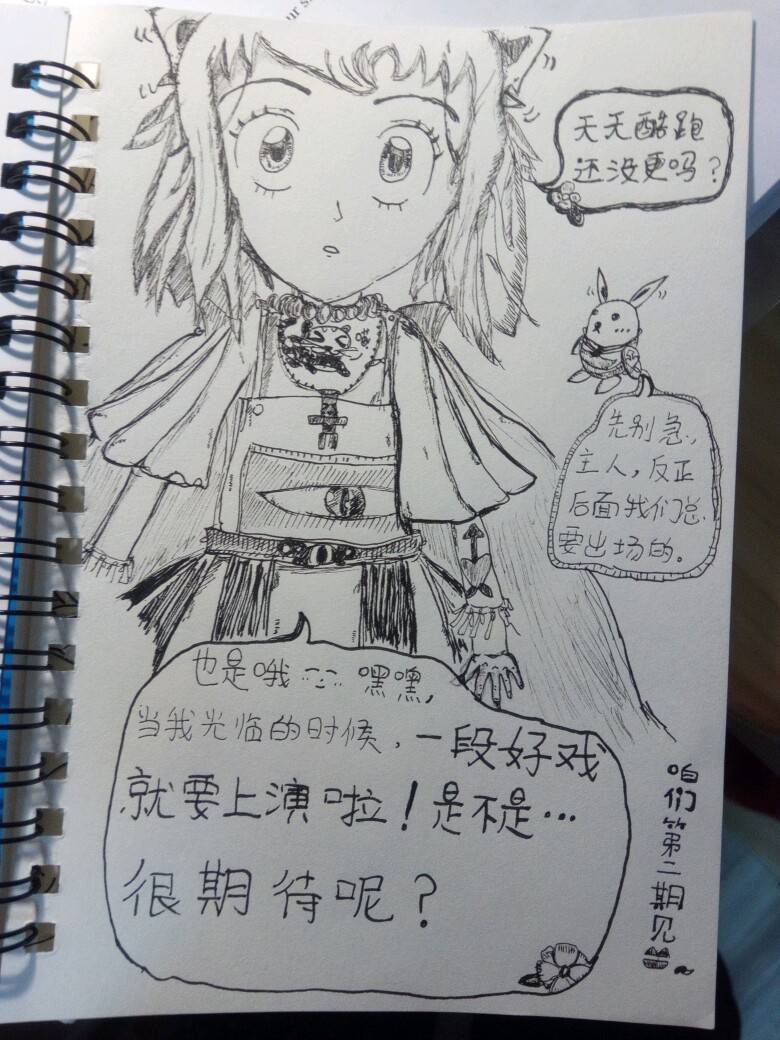 天天酷跑
还没更吗？
先别急，
主人，反正
后面我们总
要出场的。
也是哦……嘿嘿，
当我光临的时候，一段好戏
就要上演啦！是不是…
很期待呢？
咱们第二期见